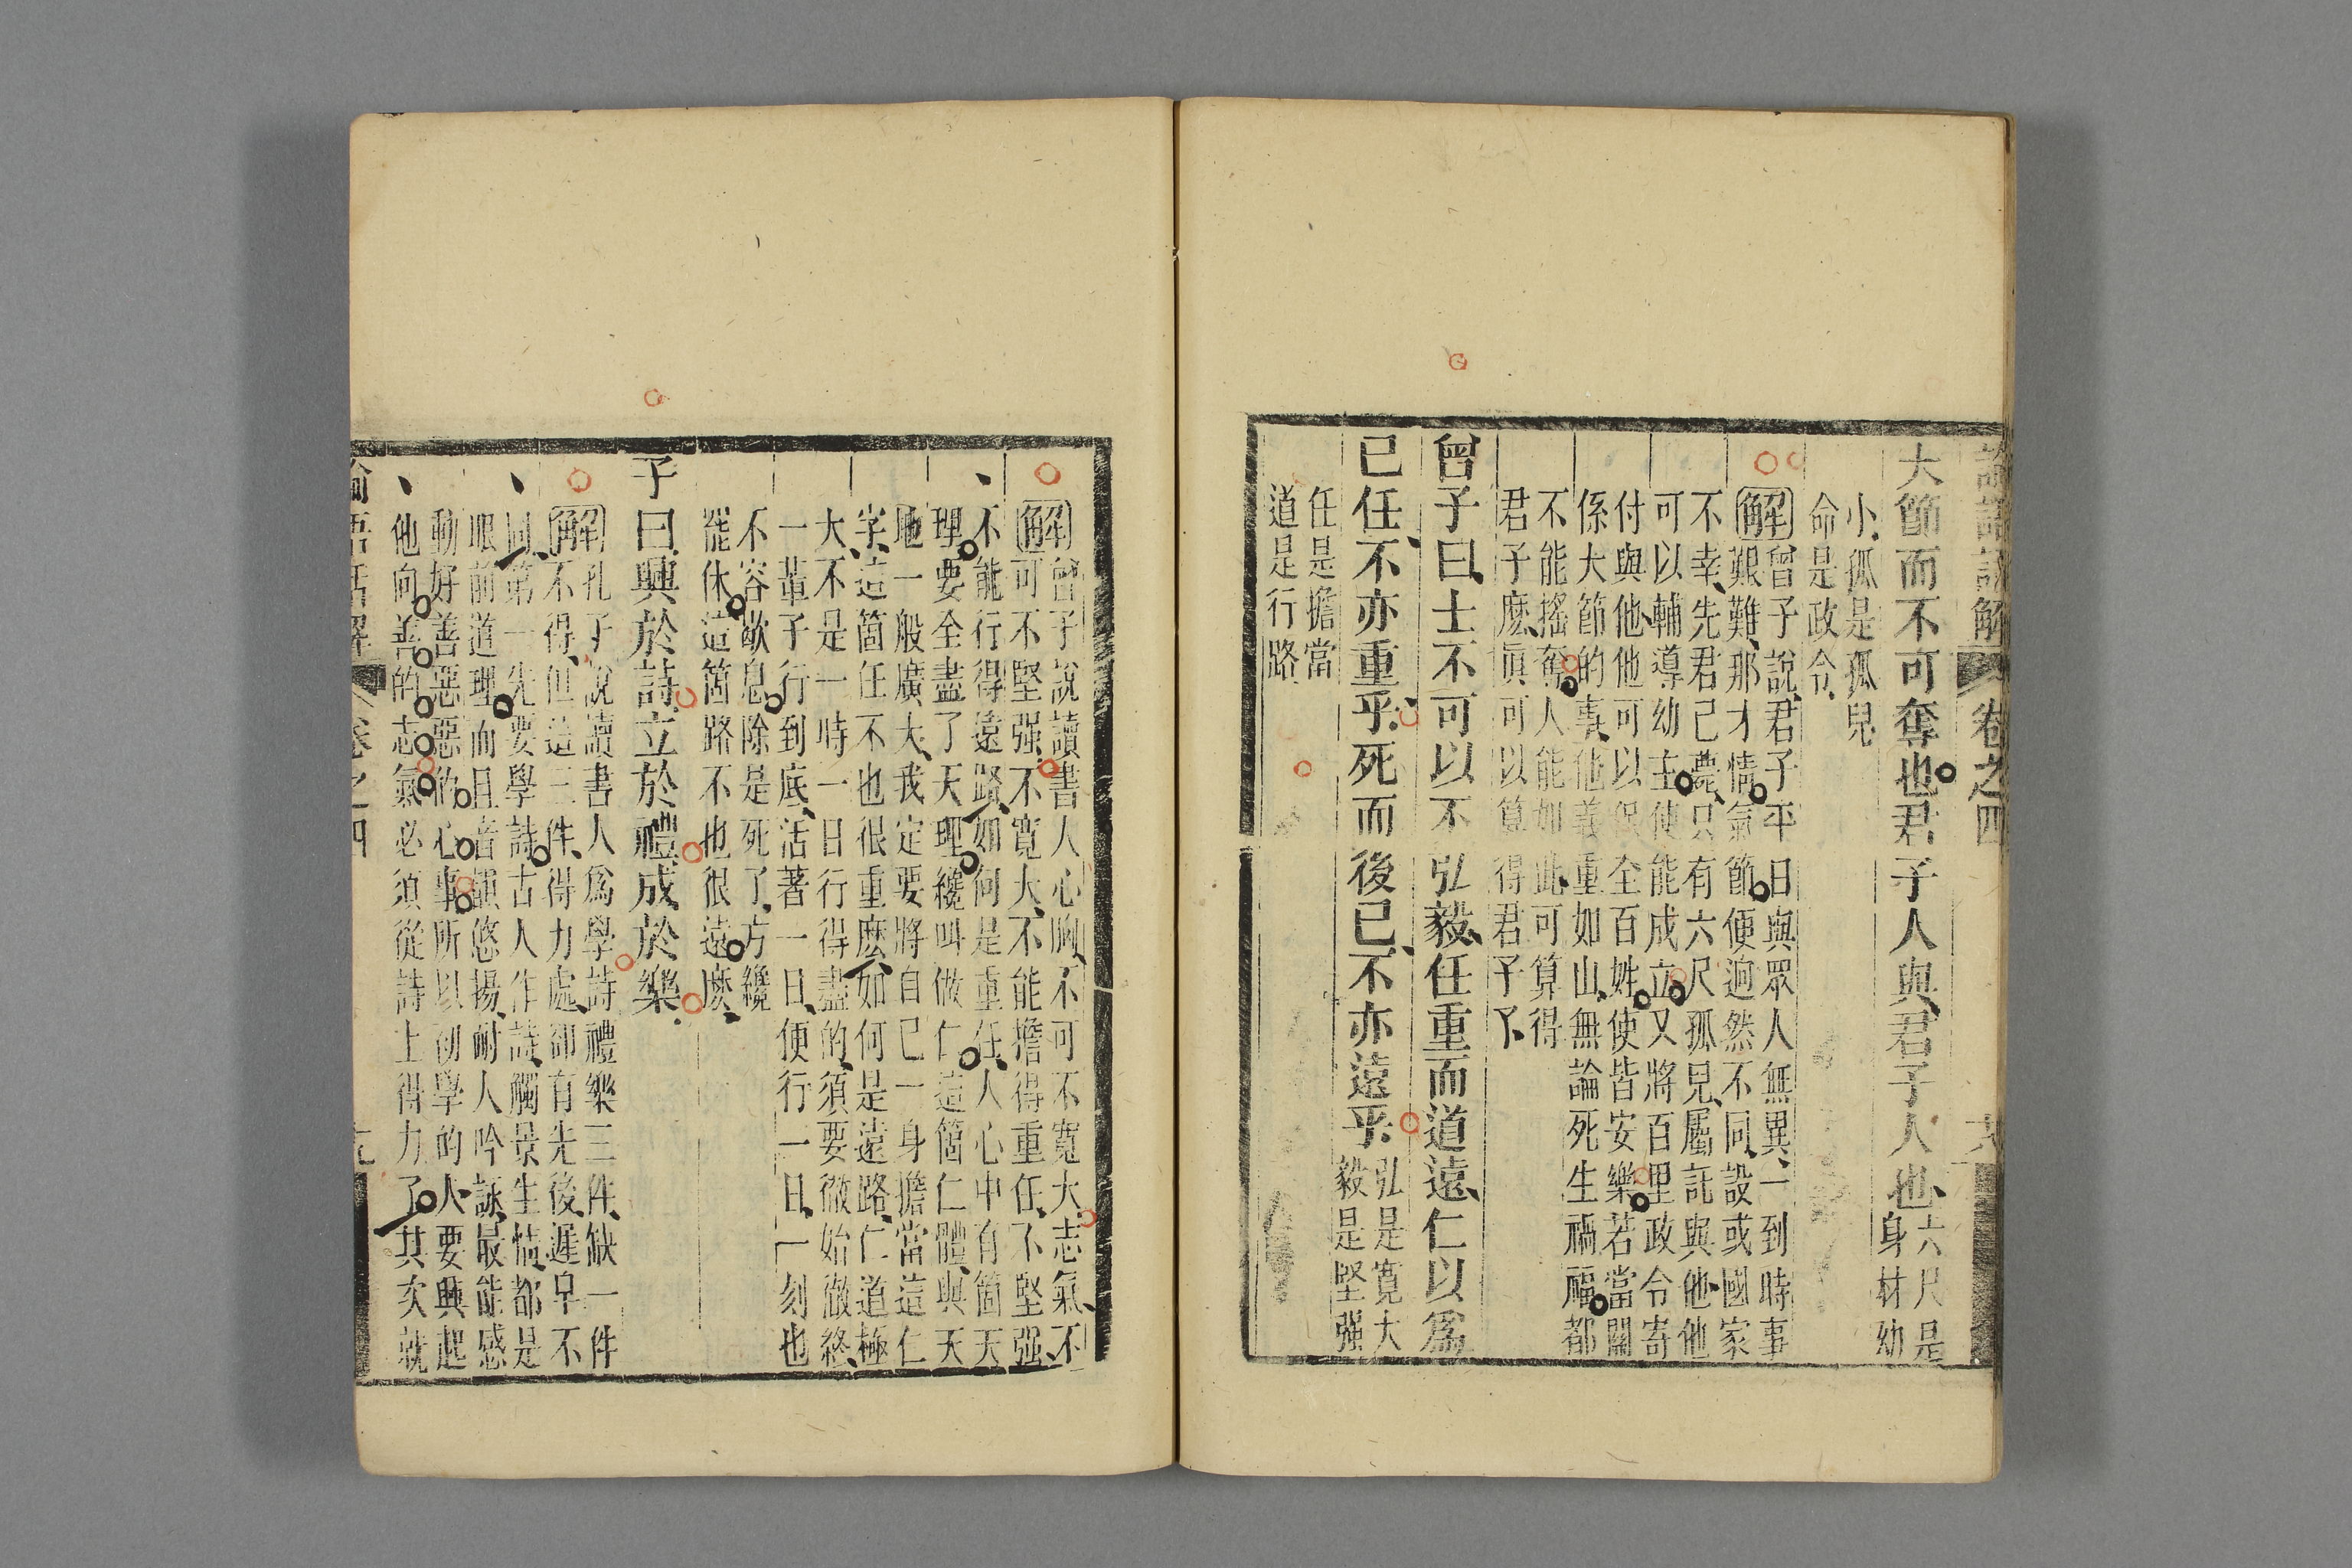 論語話解 卷之四
大節而不可奪也君子人與君子人也 六尺是
身材幼
小孤是孤兒
命是政令
解 曾子說君子平日與眾人無異一到時事
艱難那才情氣節便逈然不同設或國家
不幸先君已薨只有六尺孤兒屬託與他他
可以輔導幼主使能成立又將百里政令寄
付與他他可以保全百姓使皆安樂若當關
係大節的事他義重如山無論死生禍福都
不能搖奪人能如此可算得
君子麽眞可以算得君子了
曾子曰士不可以不弘毅任重而道遠仁以爲
己任不亦重乎死而後已不亦遠乎 弘是寬大
毅是堅强
任是擔當
道是行路
解 曾子說讀書人心胸不可不寬大志氣不
可不堅强不寬大不能擔得重任不堅强
不能行得遠路如何是重任人心中有箇天
理要全盡了天理纔叫做仁這箇仁體與天
地一般廣大我定要將自己一身擔當這仁
字這箇任不也很重麽如何是遠路仁道極
大不是一時一日行得盡的須要徹始徹終
一輩子行到底活著一日便行一日一刻也
不容歇息除是死了方纔
罷休這箇路不也很遠麽
子曰興於詩立於禮成於樂
解 孔子說讀書人爲學詩禮樂三件缺一件
不得但這三件得力處卻有先後遲早不
同第一先要學詩古人作詩觸景生情都是
眼前道理而且音韻悠揚耐人吟詠最能感
動好善惡惡的心事所以初學的人要興起
他向善的志氣必須從詩上得力了其次就
論語話解 卷之四